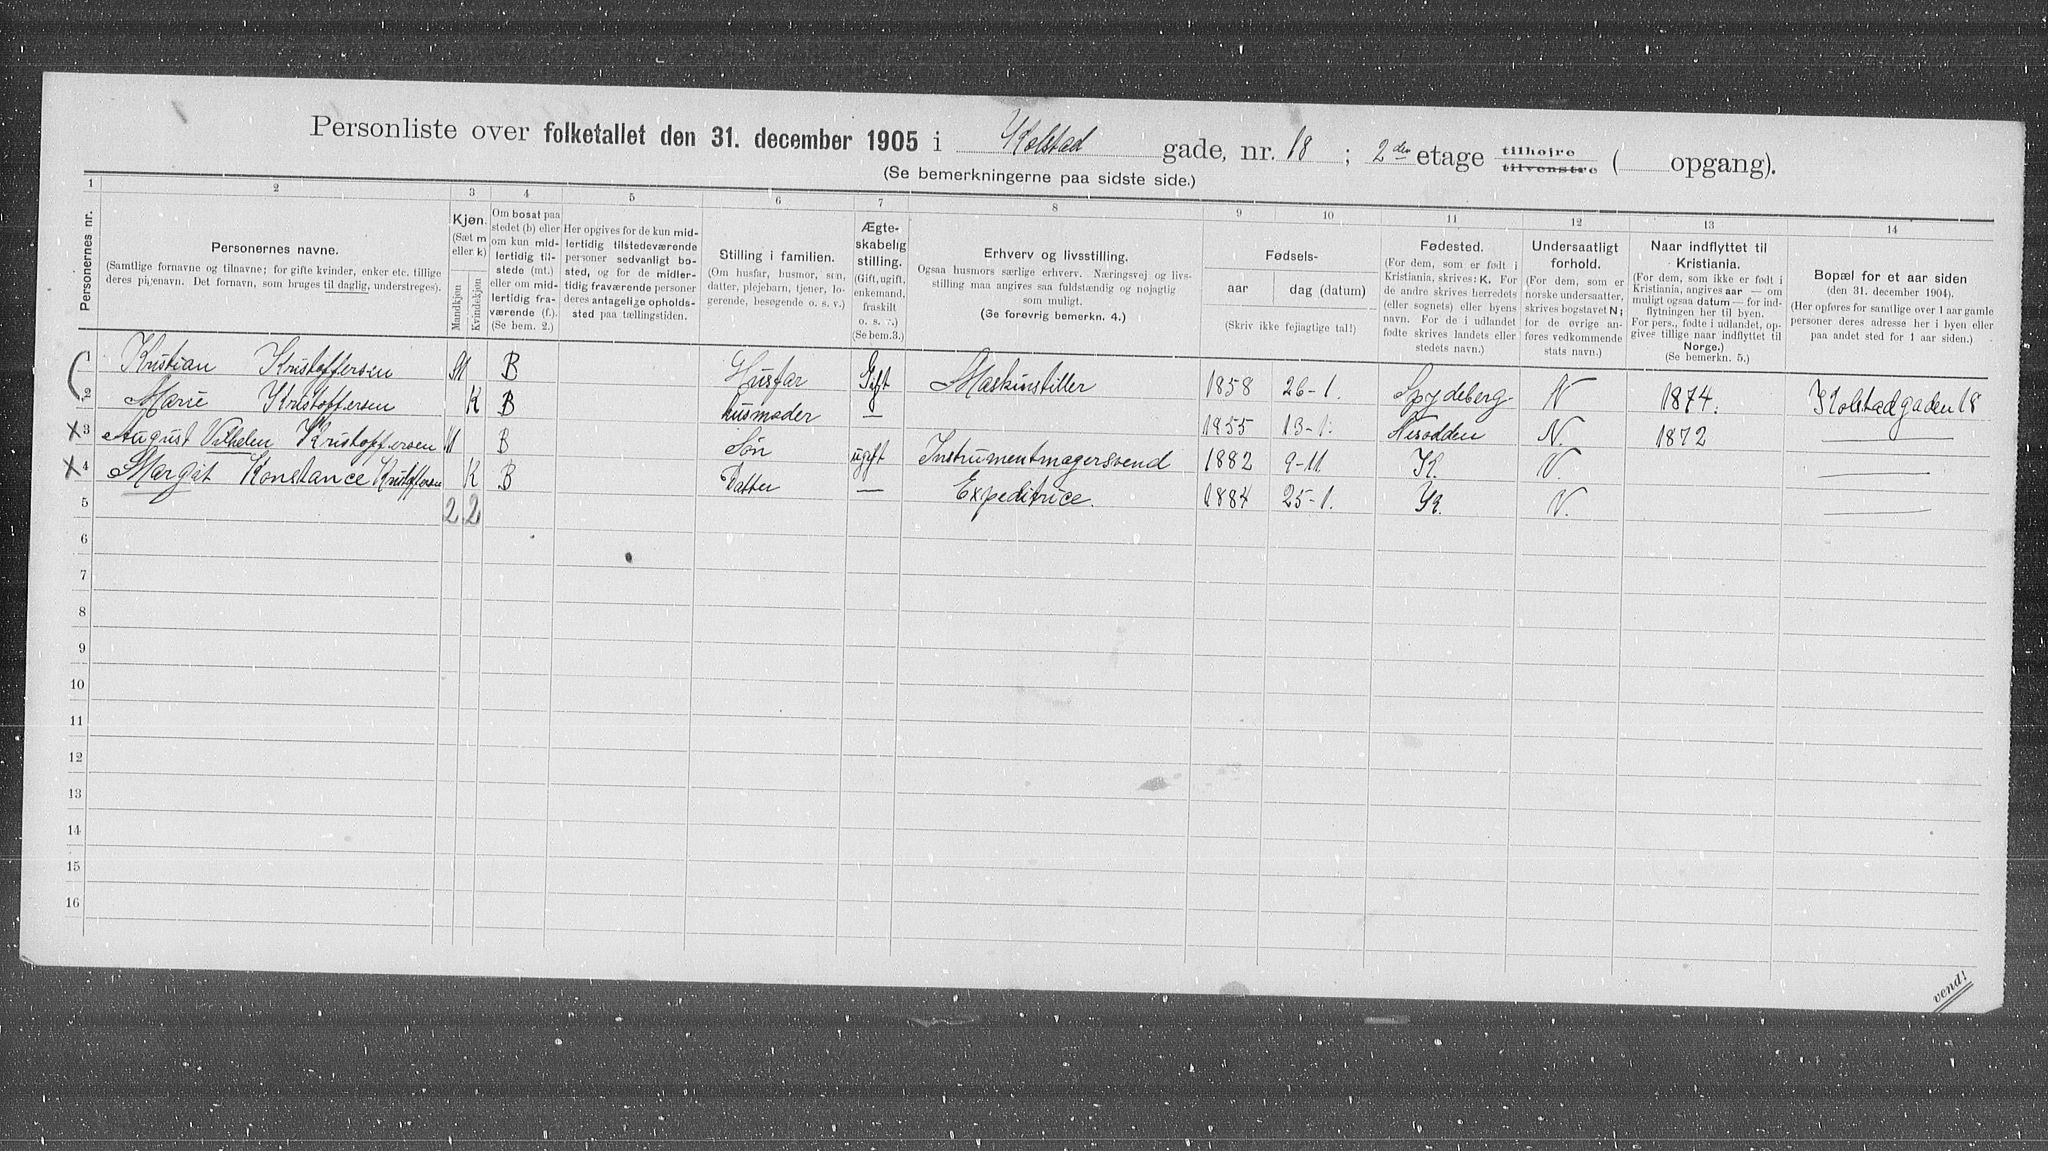 Personliste over folketallet den 31. december 1905 i Kolstad gade, nr. 18 ; 2den etage tilhøire tilvenstre ( opgang).
(Se bemerkningerne paa sidste side.)
1 2 3 4 5 6 7 8 9 10 11 12 13 14
Personernes nr.
Personernes navne.
(Samtlige fornavne og tilnavne; for gifte kvinder, enker etc. tillige
deres pigenavn. Det fornavn, som bruges til daglig, understreges).
Kjøn.
(Sæt m
eller k)
Mandkjøn
Kvindekjøn
Om bosat paa
stedet (b) eller
om kun mid-
lertidig til-
stede (mt.)
eller om mid-
lertidig fra-
værende (f.).
(Se bem. 2.)
Her opgives for de kun mid-
lertidig tilstedeværende
personer sedvanligt bo-
sted, og for de midler-
tidig fraværende personer
deres antagelige opholds-
sted paa tællingstiden.
Stilling i familien.
(Om husfar, husmor, søn,
datter, plejebarn, tjener, lo-
gerende, besøgende o. s. v.)
Ægte-
skabelig
stilling.
(Gift, ugift,
enkemand,
fraskilt
o. s. v.)
(Se bem. 3.)
Erhverv og livsstilling.
Ogsaa husmors særlige erhverv. Næringsvej og livs-
stilling maa angives saa fuldstændig og nøjagtig
som muligt.
(Se forøvrig bemerkn. 4.)
Fødsels-
aar
dag (datum)
(Skriv ikke fejlagtige tal!)
Fødested.
(For dem, som er født i
Kristiania, skrives: K. For
de andre skrives herredets
(eller sognets) eller byens
navn. For de i udlandet
fødte skrives landets eller
stedets navn.)
Undersaatligt
forhold.
(For dem, som er
norske undersaatter,
skrives bogstavet N;
for de øvrige an-
føres vedkommende
stats navn.)
Naar indflyttet til
Kristiania.
(For dem, som ikke er født i
Kristiania, angives aar — om
muligt ogsaa datum — for ind-
flytningen her til byen.
For pers., fødte i udlandet, op-
gives tillige naar indflyttet til
Norge.)
(Se bemerkn. 5.)
Bopæl for et aar siden
(den 31. december 1904).
(Her opføres for samtlige over 1 aar gamle
personer deres adresse her i byen eller
paa andet sted for 1 aar siden.)
1 Kristian Kristoffersen M B Husfar Gift Maskinstiller 1858 26-1. Spydeberg N 1874. Kolstadgaden 18
2 Marie Kristoffersen K B husmoder — 1855 13-1. Nesodden N. 1872 —
x 3 August Vilhelm Kristoffersen M B Søn ugift Instrumentmagersvend 1882 9-11 K. N. —
x 4 Margit Konstance Kristoffersen K B Datter — Expeditrice. 1884 25-1. K. N. —
5 2 2
6
7
8
9
10
11
12
13
14
15
16
vend!